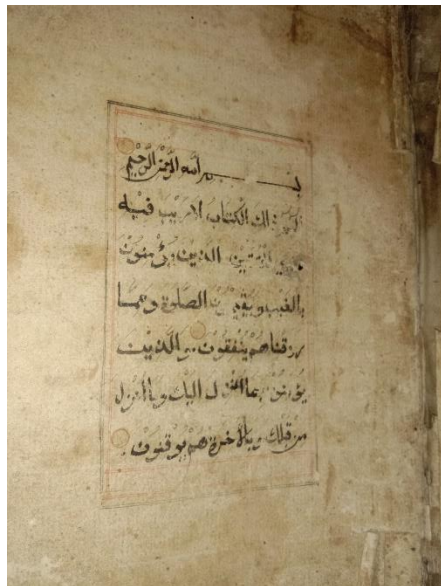 بسم الله الرحمن الرحيم
الم ذلك الكتاب لا ريب فيه
هدى للمتقين الذين يؤمنون
بالغيب ويقيمون الصلوة ومما
رزقناهم ينفقون والذين
يؤمنون بما انزل اليك وما انزل
من قبلك وبالآخرة هم يوقنون